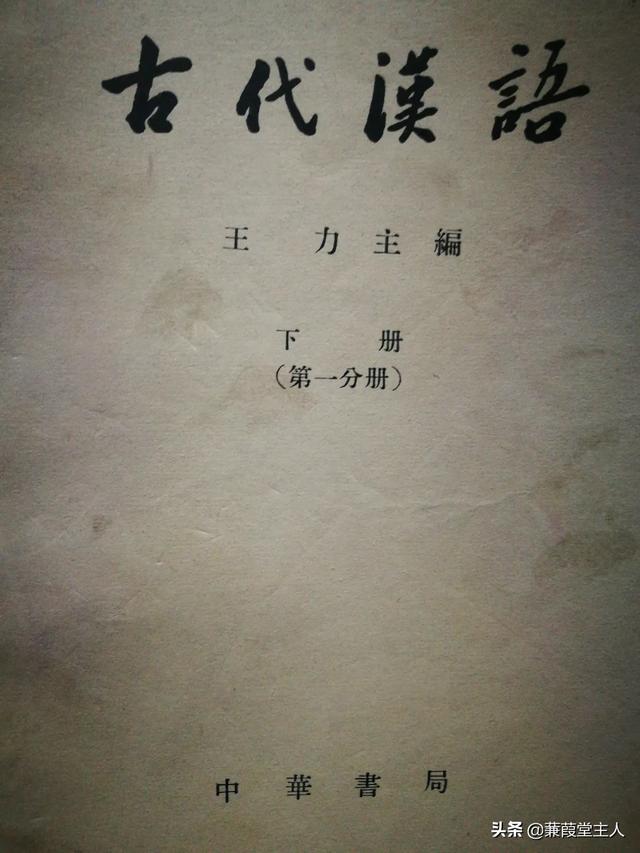 古代漢語
王力主編
下册
（第一分册）
中華書局
头条 @蒹葭堂主人